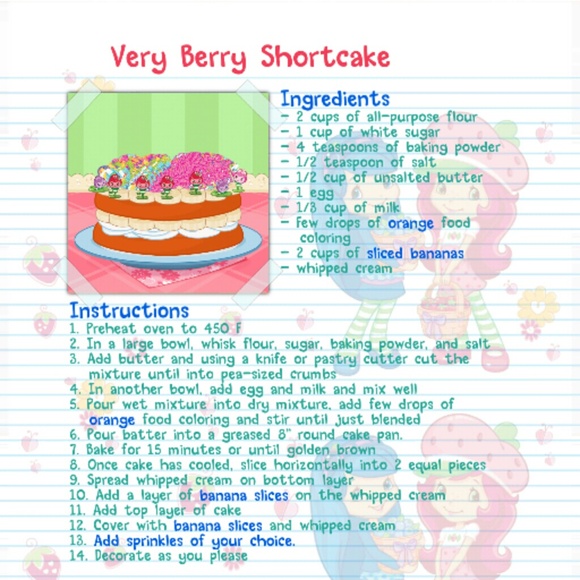 Very Berry Shortcake
Ingredients
- 2 cups of all-purpose flour
- 1 cup of white sugar
- 4 teaspoons of baking powder
- 1/2 teaspoon of salt
- 1/2 cup of unsalted butter
- 1 egg
- 1/3 cup of milk
- Few drops of orange food
coloring
- 2 cups of sliced bananas
- whipped cream
Instructions
1. Preheat oven to 450 F
2. In a large bowl, whisk flour, sugar, baking powder, and salt
3. Add butter and using a knife or pastry cutter cut the
mixture until into pea-sized crumbs
4. In another bowl, add egg and milk and mix well
5. Pour wet mixture into dry mixture, add few drops of
orange food coloring and stir until just blended
6. Pour batter into a greased 8" round cake pan.
7. Bake for 15 minutes or until golden brown
8. Once cake has cooled, slice horizontally into 2 equal pieces
9. Spread whipped cream on bottom layer
10. Add a layer of banana slices on the whipped cream
11. Add top layer of cake
12. Cover with banana slices and whipped cream
13. Add sprinkles of your choice.
14. Decorate as you please